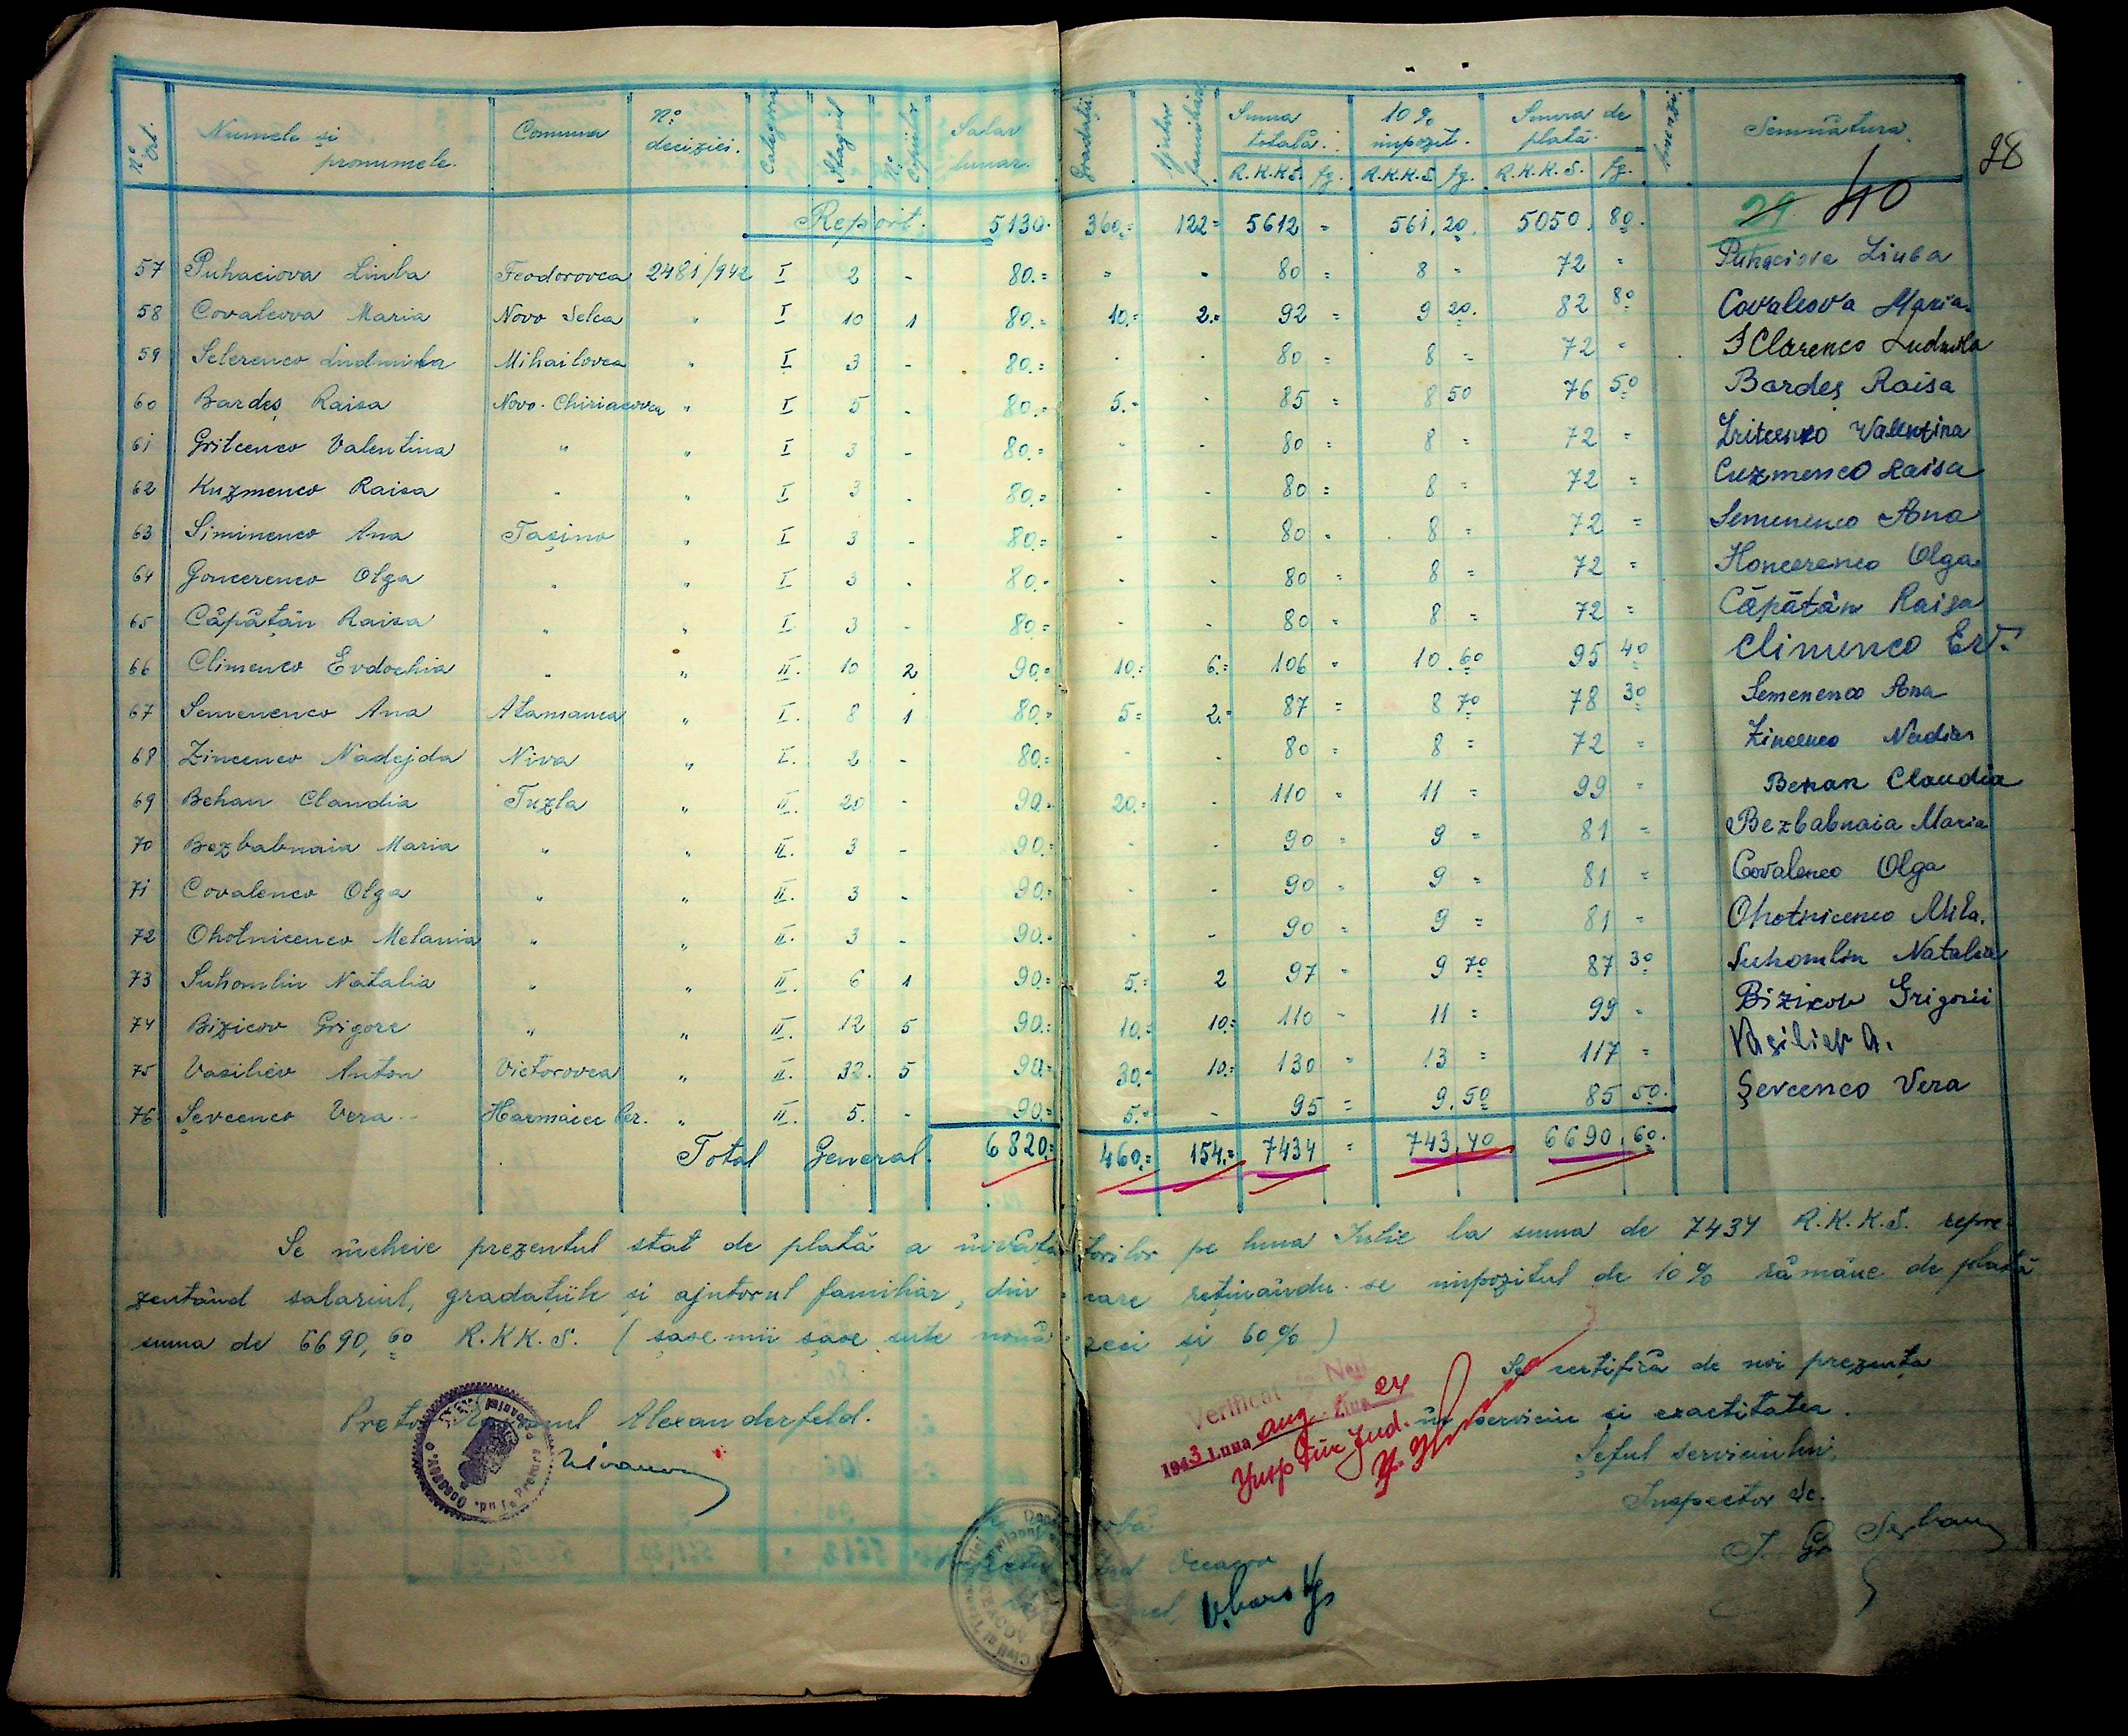 Nº Crt. Numele și pronumele. Comuna Nº deciziei. Categoria Stagiul Nº Copiilor Salar lunar. Gradații Ajutor familiar Suma totală. 10% impozit. Suma de plată. Semnătura. 28
R.K.K.S. fg. R.K.K.S. fg. R.K.K.S. fg. 29 40
Report. 5130.- 360.= 122= 5612 = 561,20. 5050. 80.
57 Puhaciova Liuba Feodorovca 2481/942 I 2 - 80.= " - 80 = 8 = 72 = Puhaciova Liuba
58 Covaleova Maria Novo Selca " I 10 1 80.= 10.= 2.= 92 = 9 20. 82 80 Covaleova Maria
59 Selerenco Ludmila Mihailovca " I 3 - 80.= - - 80 = 8 = 72 = Sclarenco Ludmila
60 Bardeș Raisa Novo-Chiriacovca " I 5 - 80.= 5.= - 85 = 8 50 76 50 Bardeș Raisa
61 Gritcenco Valentina " " I 3 - 80.= - - 80 = 8 = 72 = Gritcenko Valentina
62 Kuzmenco Raisa " " I 3 - 80.= - - 80 = 8 = 72 = Cuzmenco Raisa
63 Siminenco Ana Tașino " I 3 - 80.= - - 80 = 8 = 72 = Semenenco Ana
64 Goncerenco Olga " " I 3 - 80.= - - 80 = 8 = 72 = Honcerenco Olga
65 Căpățân Raisa " " I 3 - 80.= - - 80 = 8 = 72 = Căpățân Raisa
66 Climenco Evdochia " " II. 10 2 90.= 10.= 6.= 106 = 10.60 95 40 Climenco Ev.
67 Semenenco Ana Atamanca " I. 8 1 80.= 5= 2.= 87 = 8 70 78 30 Semenenco Ana
68 Zincenco Nadejda Niva " I. 2 - 80.= - - 80 = 8 = 72 = Zincenco Nadia
69 Behan Claudia Tuzla " II. 20 - 90.= 20.= - 110 = 11 = 99 = Behan Claudia
70 Bezbabnaia Maria " " II. 3 - 90.= - - 90 = 9 = 81 = Bezbabnaia Maria
71 Covalenco Olga " " II. 3 - 90.= - - 90 = 9 = 81 = Covalenco Olga
72 Ohotnicenco Melania " " II. 3 - 90.= - - 90 = 9 = 81 = Ohotnicenco Mila.
73 Suhomlin Natalia " " II. 6 1 90.= 5.= 2 97 = 9 70 87 30 Suhomlin Natalia
74 Bizicov Grigore " " II. 12 5 90.= 10.= 10.= 110 = 11 = 99 = Bizicov Grigorii
75 Vasiliev Anton Victorovca " II. 32. 5 90.= 30.= 10.= 130 = 13 = 117 = Vasiliev A.
76. Șevcenco Vera Harmacec Cer. " II. 5. - 90.= 5.= - 95 = 9.50 85 50. Șevcenco Vera
Total General. 6820.= 460.= 154.= 7434 = 743,40 6690,60.
Se încheie prezentul stat de plată a învățătorilor pe luna Iulie la suma de 7434 R.K.K.S. repre-
zentând salariul, gradațiile și ajutorul familiar, din care reținându-se impozitul de 10% rămâne de plată
suma de 6690,60 R.KK.S. (șase mii șase sute nouă zeci și 60%)
Se certifică de noi prezența
în serviciu și exactitatea.
Șeful serviciului,
Inspector Șc.
Pretorul Alexanderfeld.
Verificat
1943 Luna aug. Ziua 24
Insp Fin Jud.